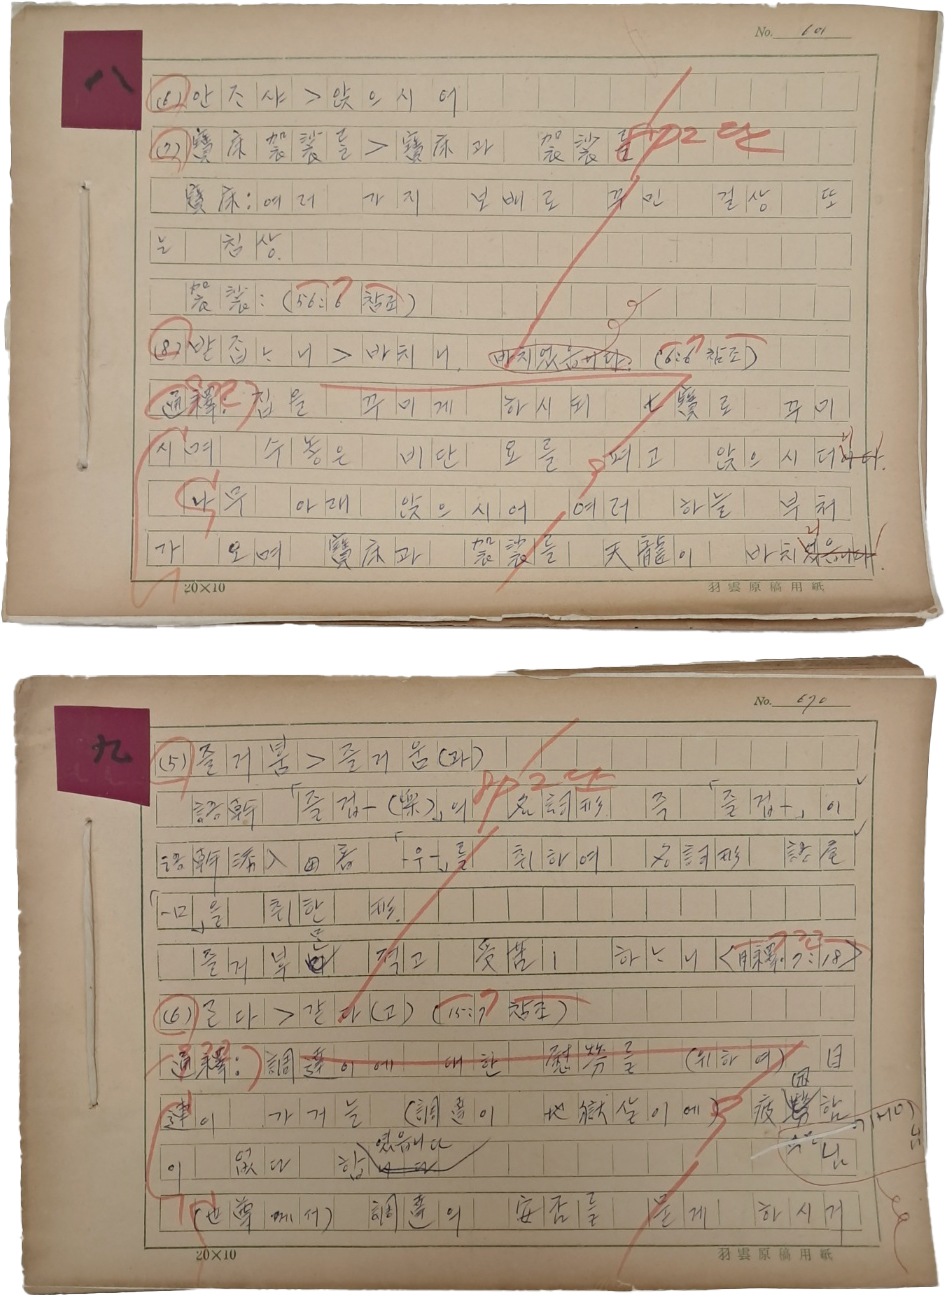 No. 601
八
(6) 안즈샤 > 앉으시어
(7) 寶床 袈裟를 > 寶床과 袈裟를
8P 2단
寶床: 여러 가지 보배로 꾸민 걸상 또
는 침상.
袈裟: (56:6 참조)
(8) 받ᄌᆸᄂᆞ니 > 바치니. 바치었읍니다. (6:6 참조)
通釋: 집을 꾸미게 하시되 七寶로 꾸미
시며 수놓은 비단 요를 펴고 앉으시더니
나무 아래 앉으시어 여러 하늘 부처
가 오며 寶床과 袈裟를 天龍이 바치니
20×10
羽雲原稿用紙
No. 670
九
(5) 즐거ᄫᅮᆷ > 즐거움(과)
8P 2단
語幹 「즐겁-(樂)」의 名詞形. 즉 「즐겁-」이
語幹 「-우-」를 취하여 名詞形 語尾
「-ㅁ」을 취한 形.
즐거ᄫᅮᆷ 적고 受苦ㅣ 하ᄂᆞ니 <月釋 7:18>
(6) ᄀᆞᆮ다 > 같다(고) (15:7 참조)
通釋: 調達이에 대한 慰勞를 (위하여) 目
連이 가거늘 (調達이 地獄살이에) 疲困함
이 없다 합
였읍니다
(世尊께서) 調達의 安否를 묻게 하시거
20×10
羽雲原稿用紙